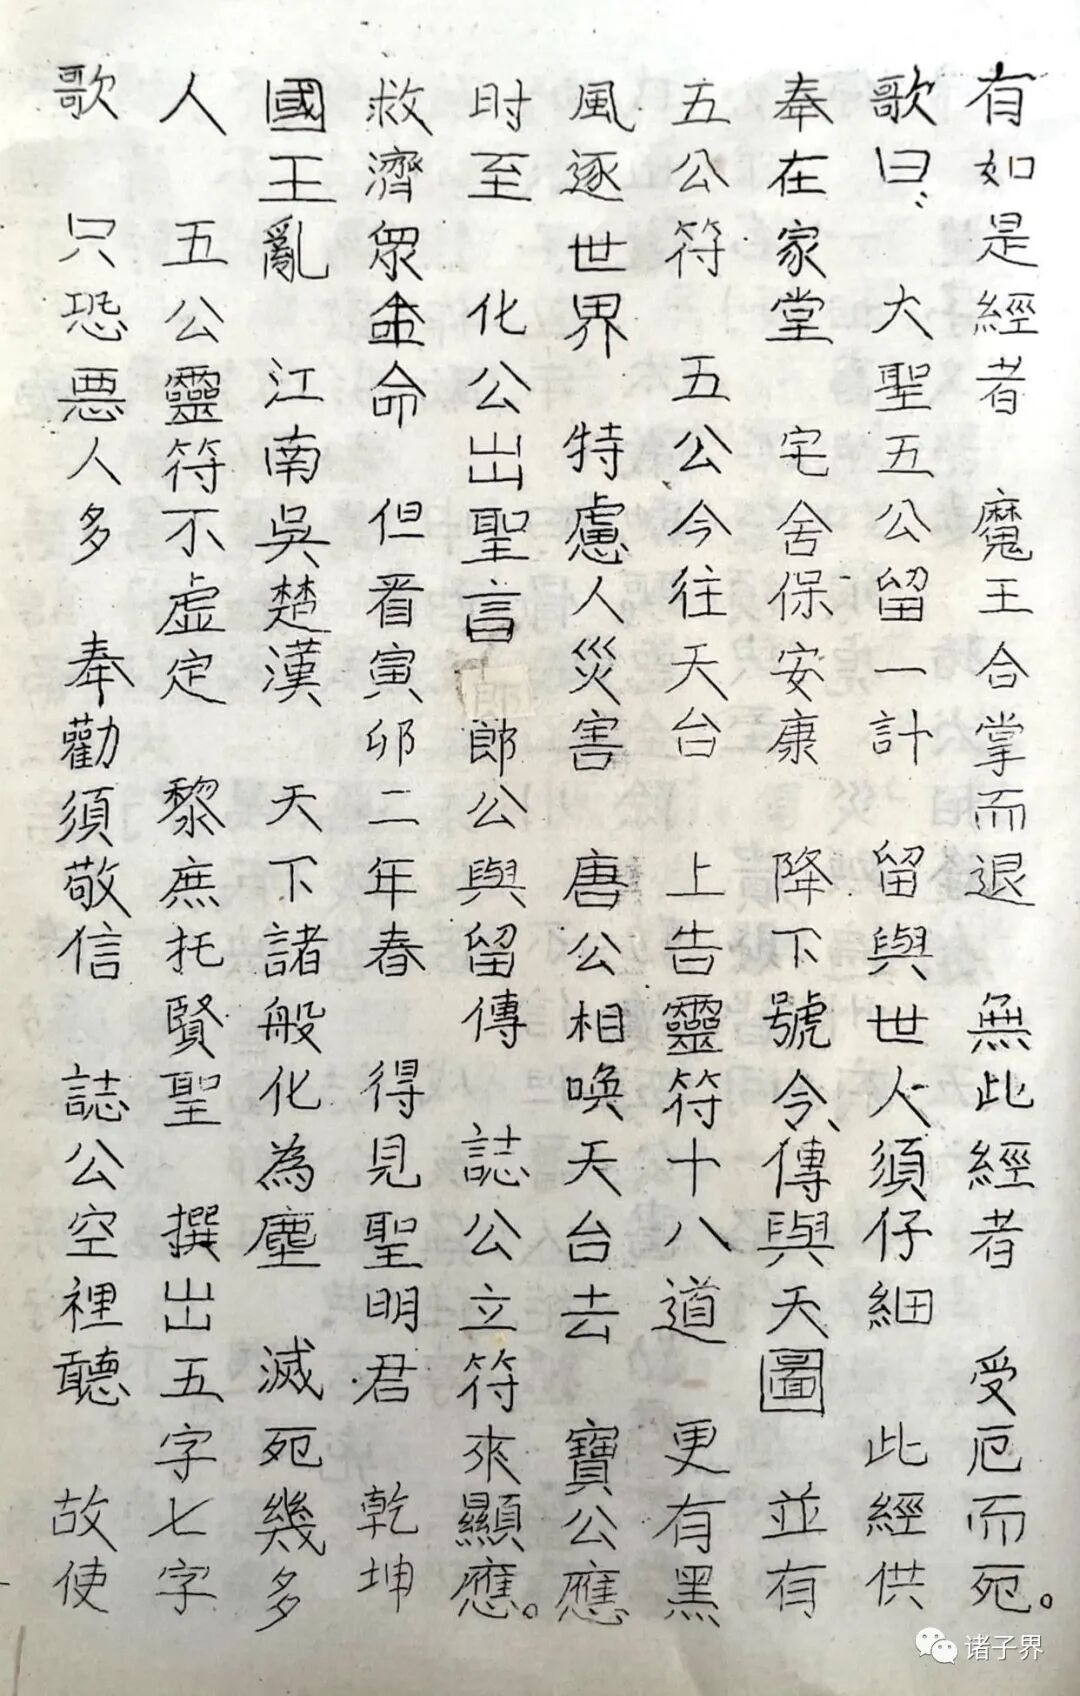 有如是經者　魔王合掌而退　無此經者　受厄而死。
歌曰：　大聖五公留一計　留與世人須仔細　此經供
奉在家堂　宅舍保安康　降下號令傳與天圖　並有
五公符　五公今往天台　上告靈符十八道　更有黑
風逐世界　特慮人災害　唐公相喚天台去　寶公應
時至　化公出聖言　郎公與留傳　誌公立符來顯應。
救濟眾命　但看寅卯二年春　得見聖明君　乾坤
國王亂　江南吳楚漢　天下諸般化為塵　滅死幾多
人　五公靈符不虛定　黎庶托賢聖　撰出五字七字
歌　只恐惡人多　奉勸須敬信　誌公空裡聽　故使
诸子界